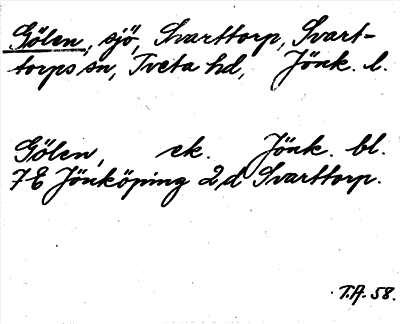 Gölen, sjö, Svarttorp, Svart-
torps sn, Tveta hd, Jönk. l.
Gölen, ek. Jönk. bl.
7E Jönköping 2d Svarttorp.
T.A. 58.